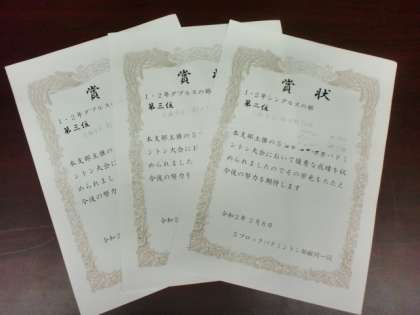 賞
1・2年ダブルスの部
第三位
本支部主催の
ントン大会に
められました
今後の努力を
令和2
賞
1・2年ダブルスの部
第三位
本支部主催の
ントン大会に
められました
今後の努力を
令和2
賞状
1・2年シングルスの部
第二位
本支部主催の バドミ
ントン大会において優秀な成績を収
められましたのでその栄光をたたえ
今後の努力を期待します
令和2年2月8日
ブロックバドミントン部顧問一同